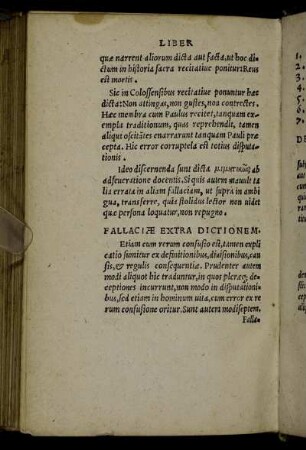 LIBER
quæ narrent aliorum dicta aut facta, ut hoc di
ctum in historia sacra recitatiue ponitur: Reus
est mortis.
Sic in Colossensibus recitatiue ponuntur hæc
dicta: Non attingas, non gustes, non contrectes.
Hæc membra cum Paulus recitet, tanquam ex=
empla traditionum, quas reprehendit, tamen
aliquot oscitãtes enarrarunt tanquam Pauli præ
cepta. Hic error corruptela est totius disputa=
tionis.
Ideo discernenda sunt dicta μιμητικῶς ab
adseueratione docentis. Si quis autem mauult ta
lia errata in aliam fallaciam, ut supra in ambi
gua, transferre, quia stolidus lector non uidet
quæ persona loquatur, non repugno.
FALLACIÆ EXTRA DICTIONEM.
Etiam cum rerum confusio est, tamen expli
catio sumitur ex definitionibus, diuisionibus, cau
sis, & regulis consequentiæ. Prudenter autem
modi aliquot hic traduntur, in quos pleræq; de=
ceptiones incurrunt, non modo in disputationi=
bus, sed etiam in hominum uita, cum error ex re
rum confusione oritur. Sunt autem modi septem.
Falla=
1.
2.